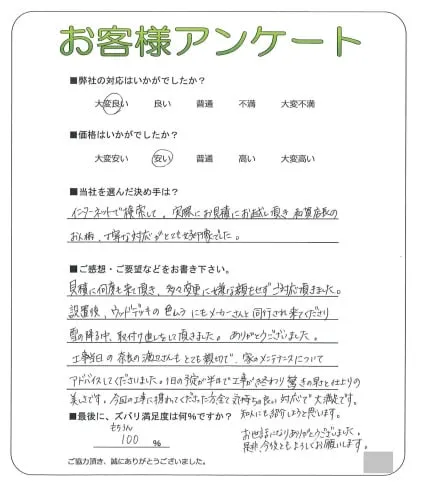 お客様アンケート
■弊社の対応はいかがでしたか？
大変良い 良い 普通 不満 大変不満
■価格はいかがでしたか？
大変安い 安い 普通 高い 大変高い
■当社を選んだ決め手は？
インターネットで検索して、実際にお見積にお越し頂き 和賀店長の
お人柄、丁寧な対応がとても好印象でした。
■ご感想・ご要望などをお書き下さい。
見積に何度も来て頂き、多々変更に嫌な顔もせずご対応頂きました。
設置後、ウッドデッキの色ムラにもメーカーさんと同行され来てくださり
雪の降る中、取付け直しをして頂きました。ありがとうございました。
工事当日の 奈良の渡辺さんもとても親切で、家のメンテナンスについて
アドバイスしてくださいました。1日の予定が半日で工事が終わり 驚きの早さと仕上りの
美しさです。今回の工事に携わてくださった方全て気持ちの良い対応で大満足です。
■最後に、ズバリ満足度は何％ですか？
知人にも紹介しようと思います。
もちろん
100 ％
お世話になりありがとうございました。
是非、今後ともよろしくお願いします。
ご協力頂き、誠にありがとうございました。